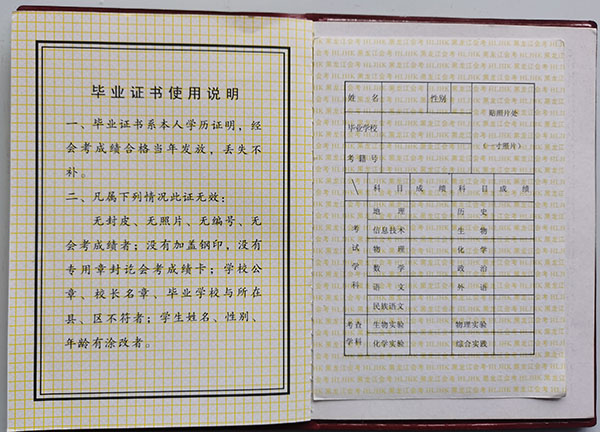 毕业证书使用说明
一、毕业证书系本人学历证明，经
会考成绩合格当年发放，丢失不
补。
二、凡属下列情况此证无效：
无封皮、无照片、无编号、无
会考成绩者；没有加盖钢印，没有
专用章封讫会考成绩卡；学校公
章、校长名章、毕业学校与所在
县、区不符者；学生姓名、性别、
年龄有涂改者。
黑龙江会考 HLJHK
姓 名 性别 贴照片处
毕业学校 (一寸照片)
考籍号
科目 成绩 科目 成绩
考试学科
地理 历史
信息技术 生物
物理 化学
数学 政治
语文 外语
民族语文
考查学科
生物实验 物理实验
化学实验 综合实践